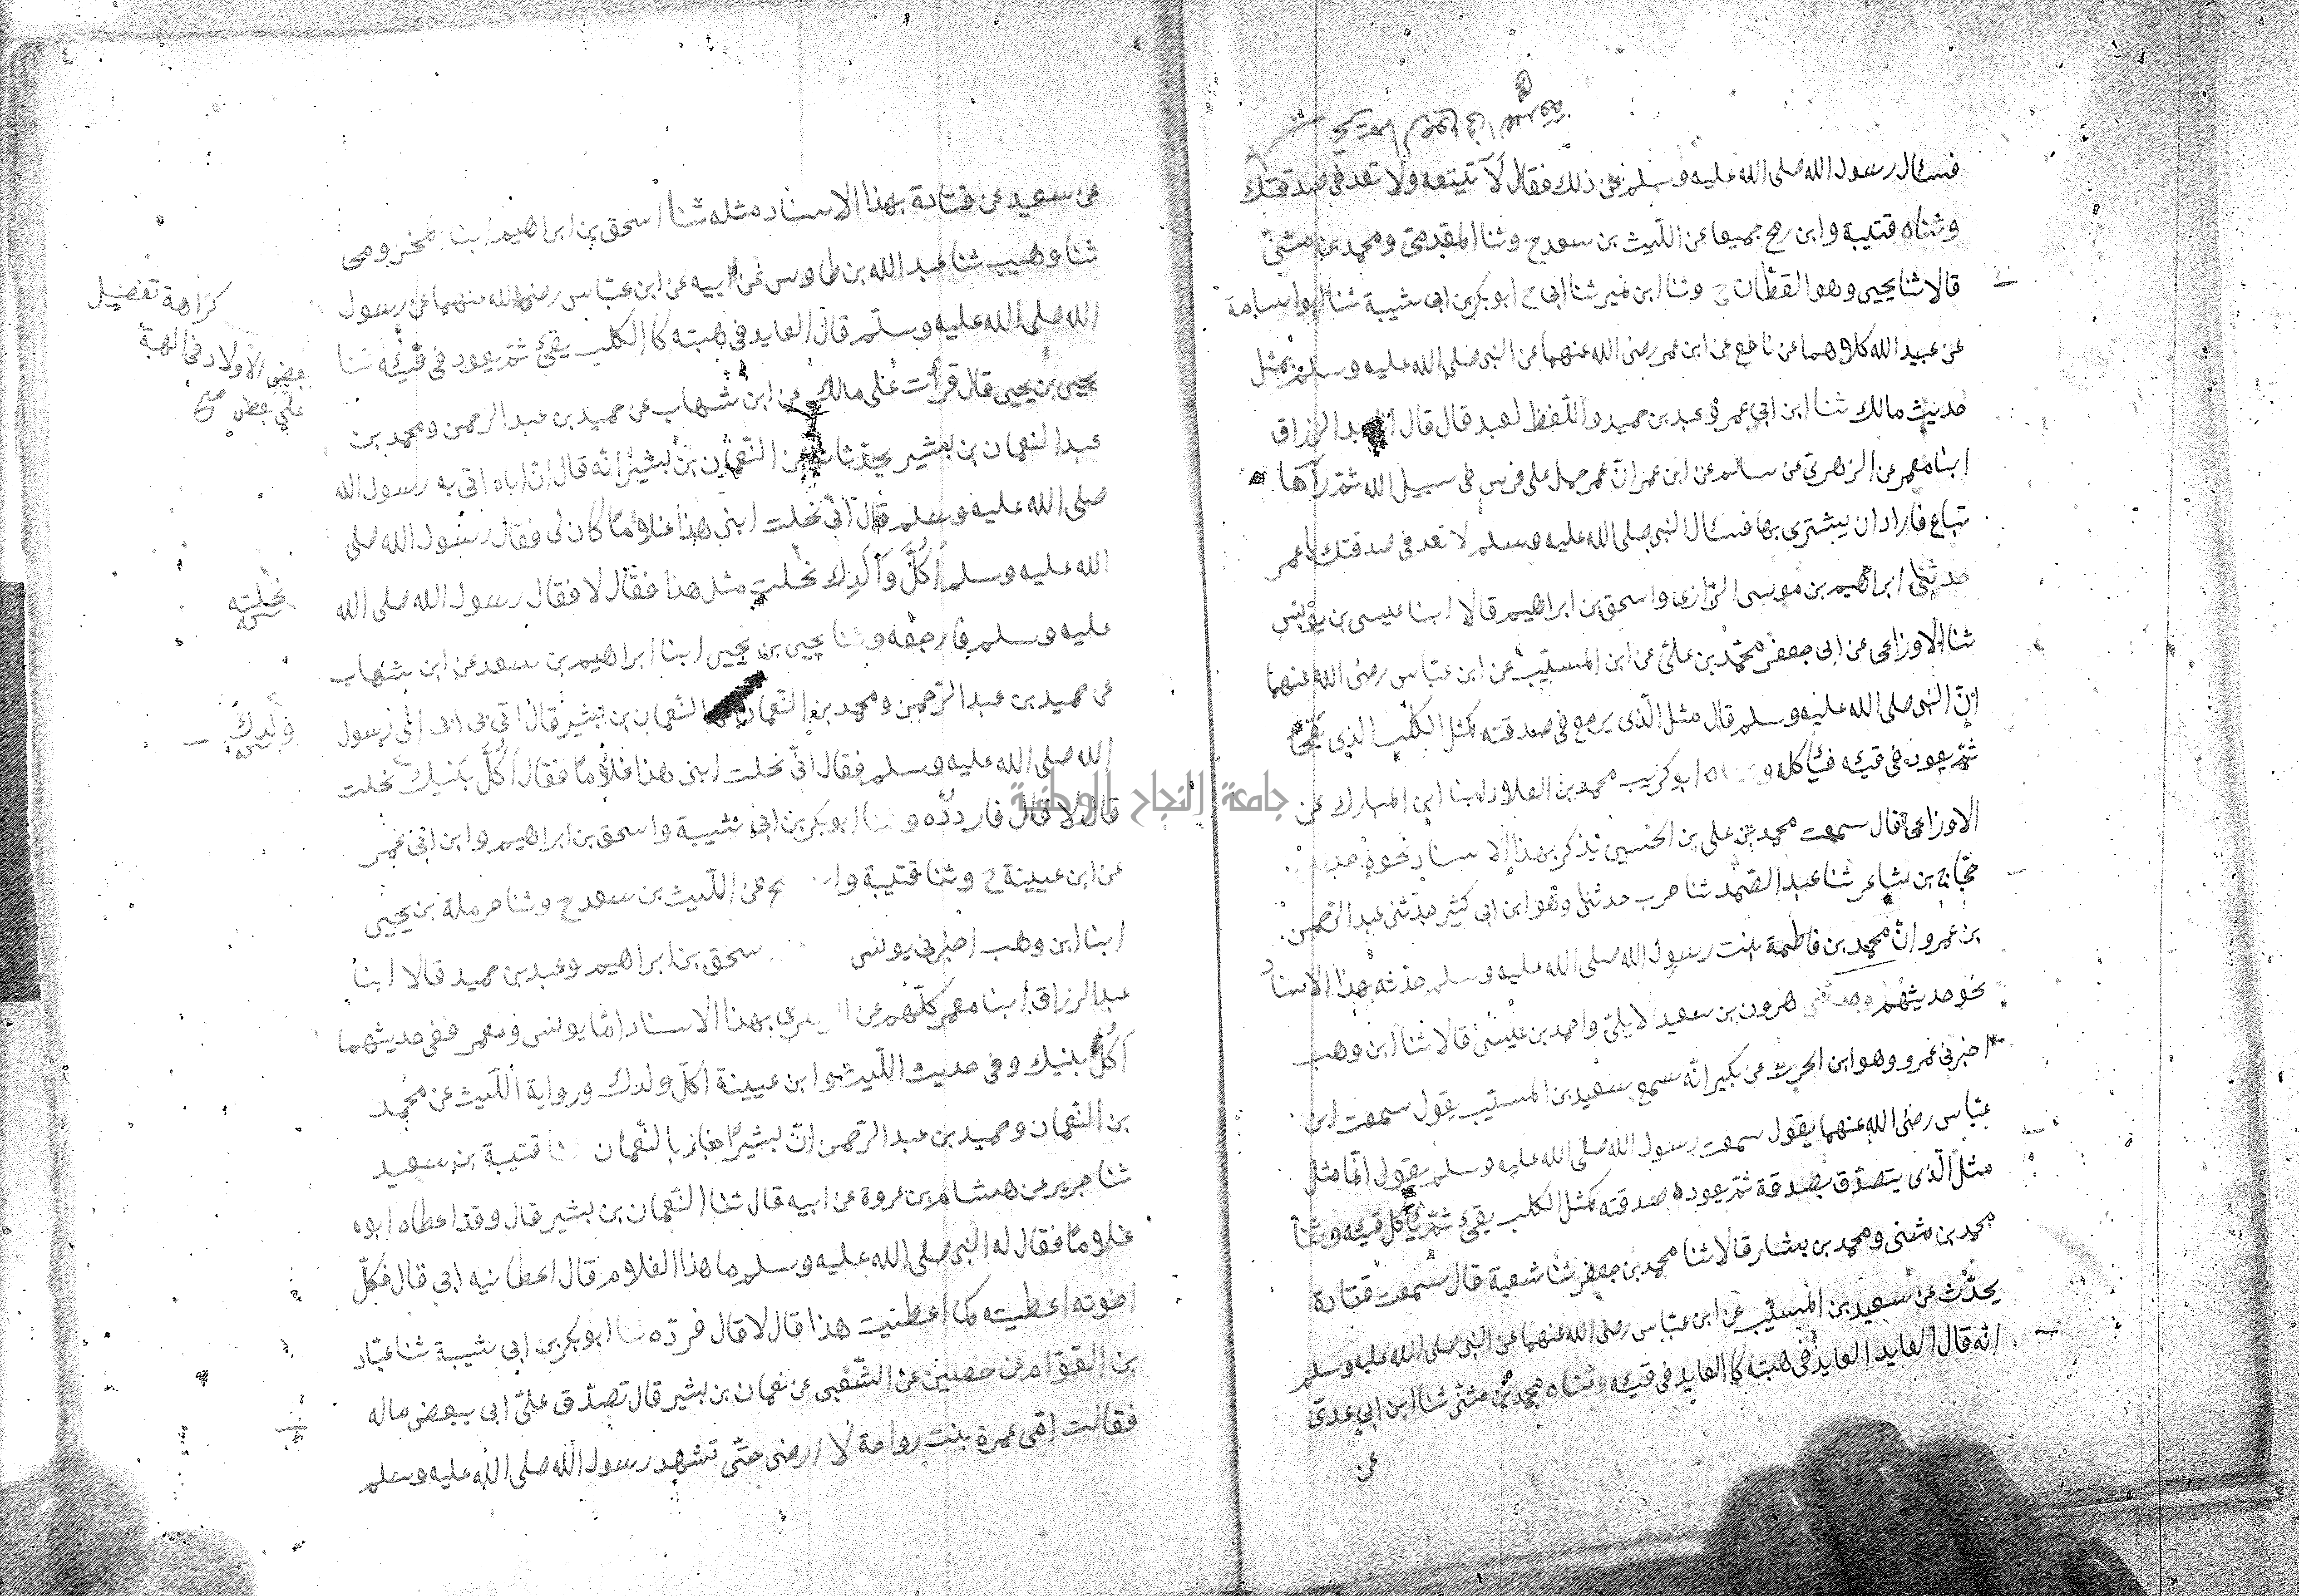 فسئال رسول الله صلى الله عليه وسلم عن ذلك فقال لا تبتعه ولا تعد في صدقتك
وثناه قتيبة وابن رمح جميعا عن الليث بن سعد ح وثنا المقدمي ومحمد بن مثنى
قالا ثنا يحيى وهو القطان ح وثنا ابن نمير ثنا ابي ح ابو بكر بن ابي شيبة ثنا ابو اسامة
عن عبيد الله كلاهما عن نافع عن ابن عمر رضى الله عنهما عن النبي صلى الله عليه وسلم بمثل
حديث مالك ثنا ابن ابي عمر وعبد بن حميد واللفظ لعبد قال قال عبد الرزاق
ابنا معمر عن الزهري عن سالم عن ابن عمر ان عمر حمل على فرس في سبيل الله ثم رآها
تباع فاراد ان يشتري بها فسئال النبي صلى الله عليه وسلم لا تعد في صدقتك يا عمر
حدثني ابراهيم بن موسى الرازي واسحق بن ابراهيم قالا ابنا عيسى بن يونس
ثنا الاوزاعي عن ابي جعفر محمد بن علي عن ابن المسيب عن ابن عباس رضى الله عنهما
ان النبي صلى الله عليه وسلم قال مثل الذي يرجع في صدقته كمثل الكلب الذي يقئ
ثم يعود في قيئه فيأكله ابو كريب محمد بن العلاء ابنا ابن المبارك عن
الاوزاعي قال سمعت محمد بن علي بن الحسين يذكر بهذا الاسناد نحوه
حجاج بن شاعر ثنا عبد الصمد ثنا حرب حدثني وهو ابن ابي كثير حدثني عبد الرحمن
بن عمرو ان محمد بن فاطمة بنت رسول الله صلى الله عليه وسلم حدثه بهذا الاسناد
نحو حديثهم وحدثني هرون بن سعيد الايلي واحمد بن عيسى قالا ثنا ابن وهب
اخبرني عمرو وهو ابن الحرث عن بكير انه سمع سعيد بن المسيب يقول سمعت ابن
عباس رضى الله عنهما يقول سمعت رسول الله صلى الله عليه وسلم يقول انما مثل
مثل الذي يتصدق بصدقة ثم يعود صدقته كمثل الكلب يقئ ثم يأكل قيئه وثنا
محمد بن مثنى ومحمد بن بشار قالا ثنا محمد بن جعفر ثنا شعبة قال سمعت قتادة
يحدث عن سعيد بن المسيب عن ابن عباس رضى الله عنهما عن النبي صلى الله عليه وسلم
انه قال العايد العايد في هبته كالعايد في قيئه وثناه محمد بن مثنى ثنا ابن ابي عدي
عن
عن سعيد عن قتادة بهذا الاسناد مثله ثنا اسحق بن ابراهيم ابنا مخزومي
ثنا وهيب ثنا عبد الله بن طاوس عن ابيه عن ابن عباس رضى الله عنهما عن رسول
الله صلى الله عليه وسلم قال العايد في هبته كالكلب يقئ ثم يعود في قيئه ثنا
يحيى بن يحيى قال قرأت على مالك عن ابن شهاب عن حميد بن عبد الرحمن ومحمد بن
عبد النعمان بن بشير يحدثانه عن النعمان بن بشير انه قال ان اباه اتى به رسول الله
صلى الله عليه وسلم قال انى نحلت ابني هذا غلاما كان لى فقال رسول الله صلى
الله عليه وسلم أكل ولدك نحلت مثل هذا فقال لا فقال رسول الله صلى الله
عليه وسلم فارجعه وثنا يحيى بن يحيى ابنا ابراهيم بن سعد عن ابن شهاب
عن حميد بن عبد الرحمن ومحمد بن النعمان النعمان بن بشير قال اتى بي ابى الى رسول
الله صلى الله عليه وسلم فقال انى نحلت ابنى هذا غلاما فقال أكل بنيك نحلت
قال لا قال فاردده وثنا ابو بكر بن ابي شيبة واسحق بن ابراهيم وابن ابي عمر
عن ابن عيينة ح وثنا قتيبة عن الليث بن سعد ح وثنا حرملة بن يحيى
ابنا ابن وهب اخبرني يونس سحق بن ابراهيم وعبد بن حميد قالا ابنا
عبد الرزاق ابنا معمر كلهم عن بهذا الاسناد اما يونس ومعمر ففى حديثهما
أكل بنيك وفى حديث الليث وابن عيينة اكل ولدك ورواية الليث عن محمد
بن النعمان وحميد بن عبد الرحمن ان بشيرا جاء بالنعمان ثنا قتيبة بن سعيد
ثنا جرير عن هشام بن عروة عن ابيه قال ثنا النعمان بن بشير قال وقد اعطاه ابوه
غلاما فقال له النبي صلى الله عليه وسلم ما هذا الغلام قال اعطانيه ابي قال فكل
اخوته اعطيته كما اعطيت هذا قال لا قال فرده ثنا ابو بكر بن ابي شيبة ثنا عباد
بن القوام عن حصين عن الشعبى عن نعمان بن بشير قال تصدق على ابى ببعض ماله
فقالت امى عمرة بنت رواحة لا ارضى حتى تشهد رسول الله صلى الله عليه وسلم
كراهة تفضيل
بعض الاولاد فى الهبة
على بعض صح
نحلته
ولدك
جامعة النجاح الوطنية